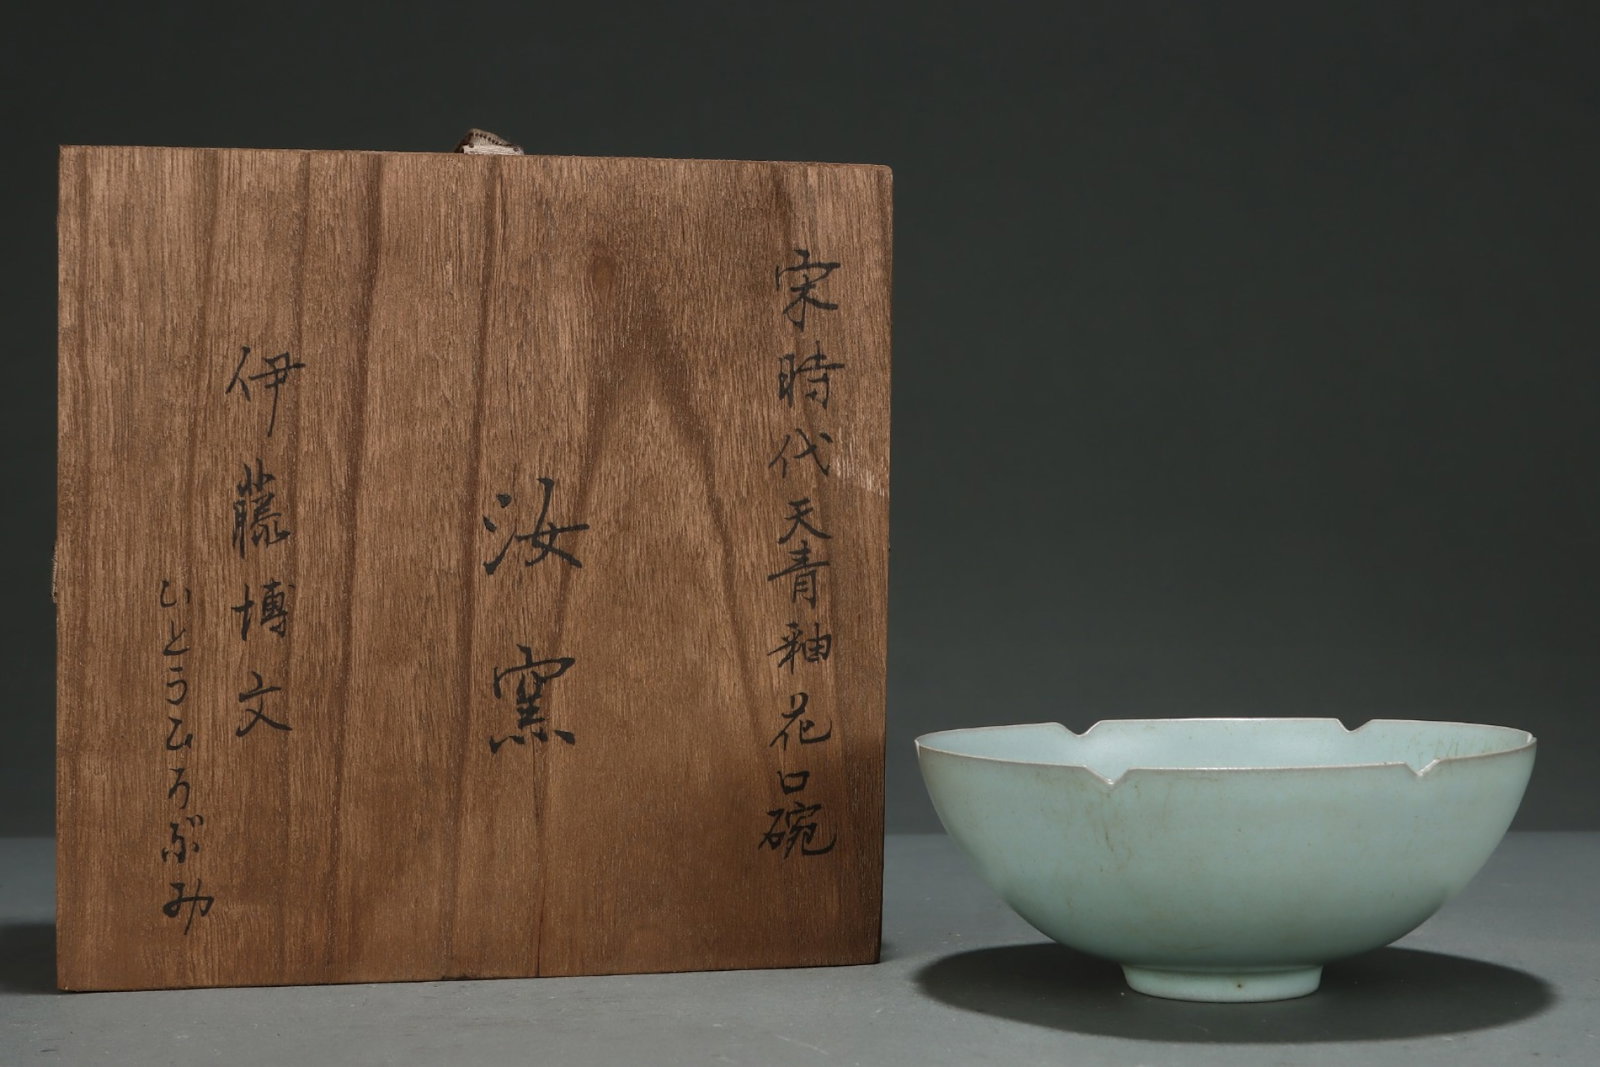 宋時代天青釉花口碗
汝窯
伊藤博文
いとうひろぶみ